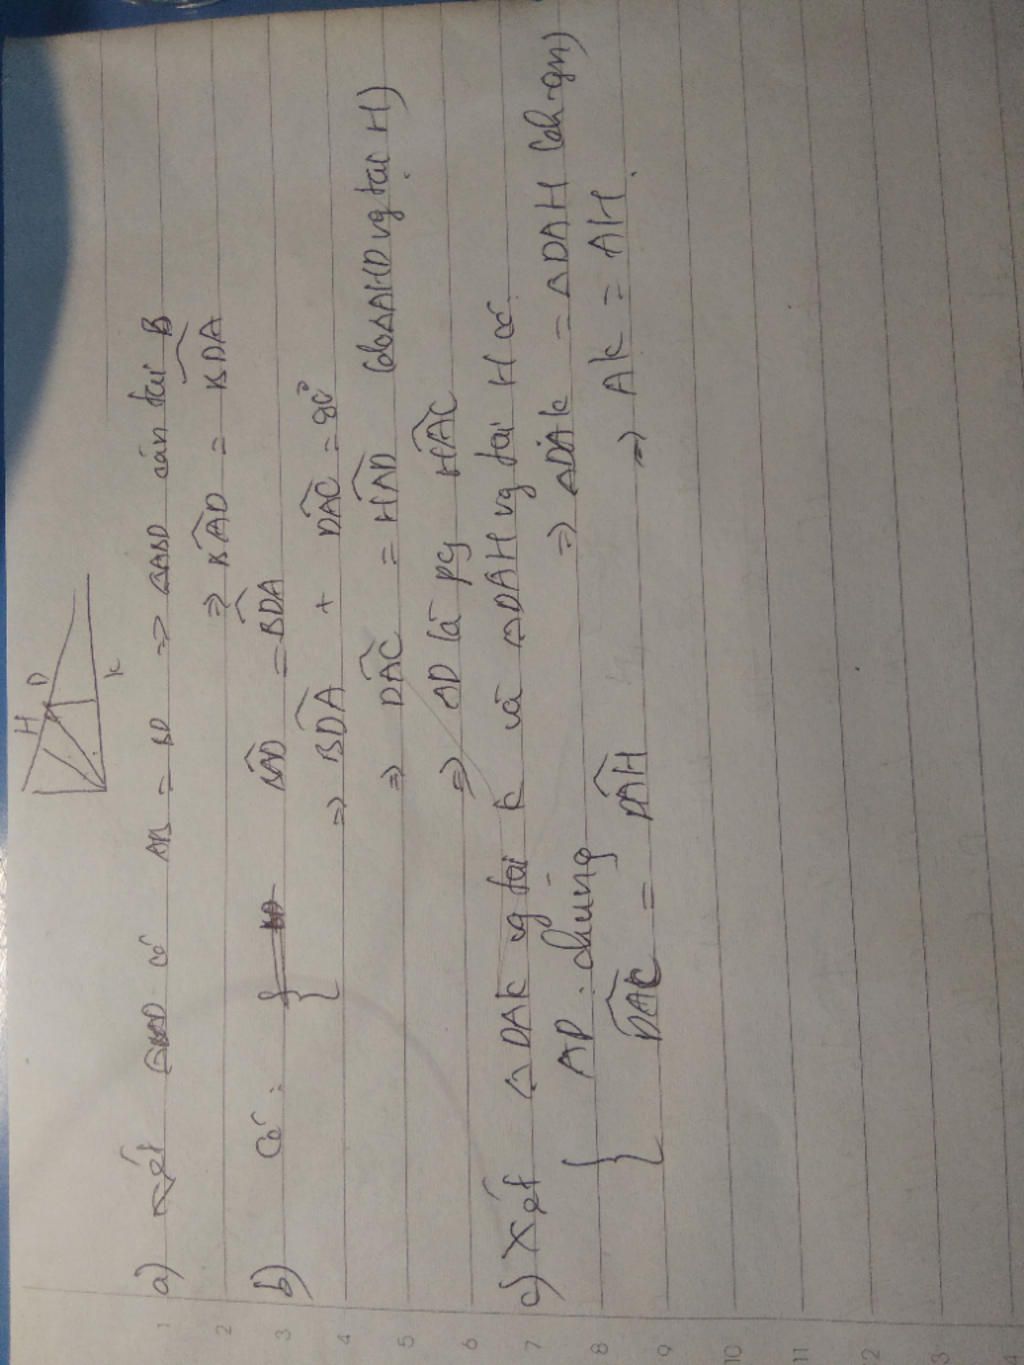 H D
K
a) Xét ΔBAD có AB = BD => ΔABD cân tại B
=> BAD = BDA
b) Có: { BAD = BDA
=> BDA + DAC = 90°
=> DAC = HAD (do ΔAHD vg tại H)
=> AD là pg HAC
c) Xét Δ DAK vg tại K và Δ DAH vg tại H có
{ AD chung => ΔDAK = ΔDAH (ch-gn)
DAK = DAH => AK = AH.
1
2
3
4
5
6
7
8
9
10
11
2
3